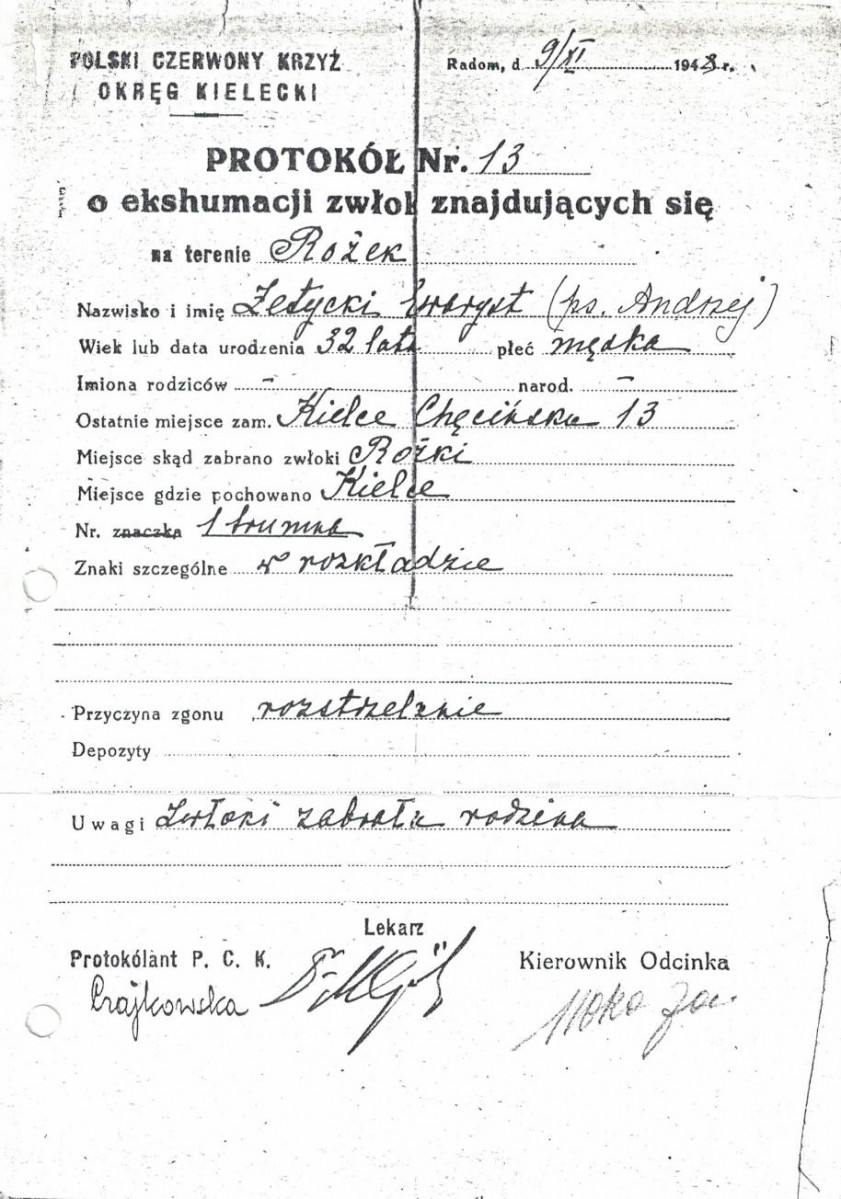 POLSKI CZERWONY KRZYŻ
OKRĘG KIELECKI
Radom, d 9/XI 1948 r.
PROTOKÓŁ Nr. 13
o ekshumacji zwłok znajdujących się
na terenie Rożek
Nazwisko i imię Zetycki Ewaryst (ps. Andrzej)
Wiek lub data urodzenia 32 lata płeć męska
Imiona rodziców - narod. -
Ostatnie miejsce zam. Kielce Chęcińska 13
Miejsce skąd zabrano zwłoki Rożki
Miejsce gdzie pochowano Kielce
Nr. znaczka 1 trumna
Znaki szczególne w rozkładzie
Przyczyna zgonu rozstrzelanie
Depozyty
Uwagi Zwłoki zabrała rodzina
Lekarz
Protokólant P. C. K. Kierownik Odcinka
Czajkowska